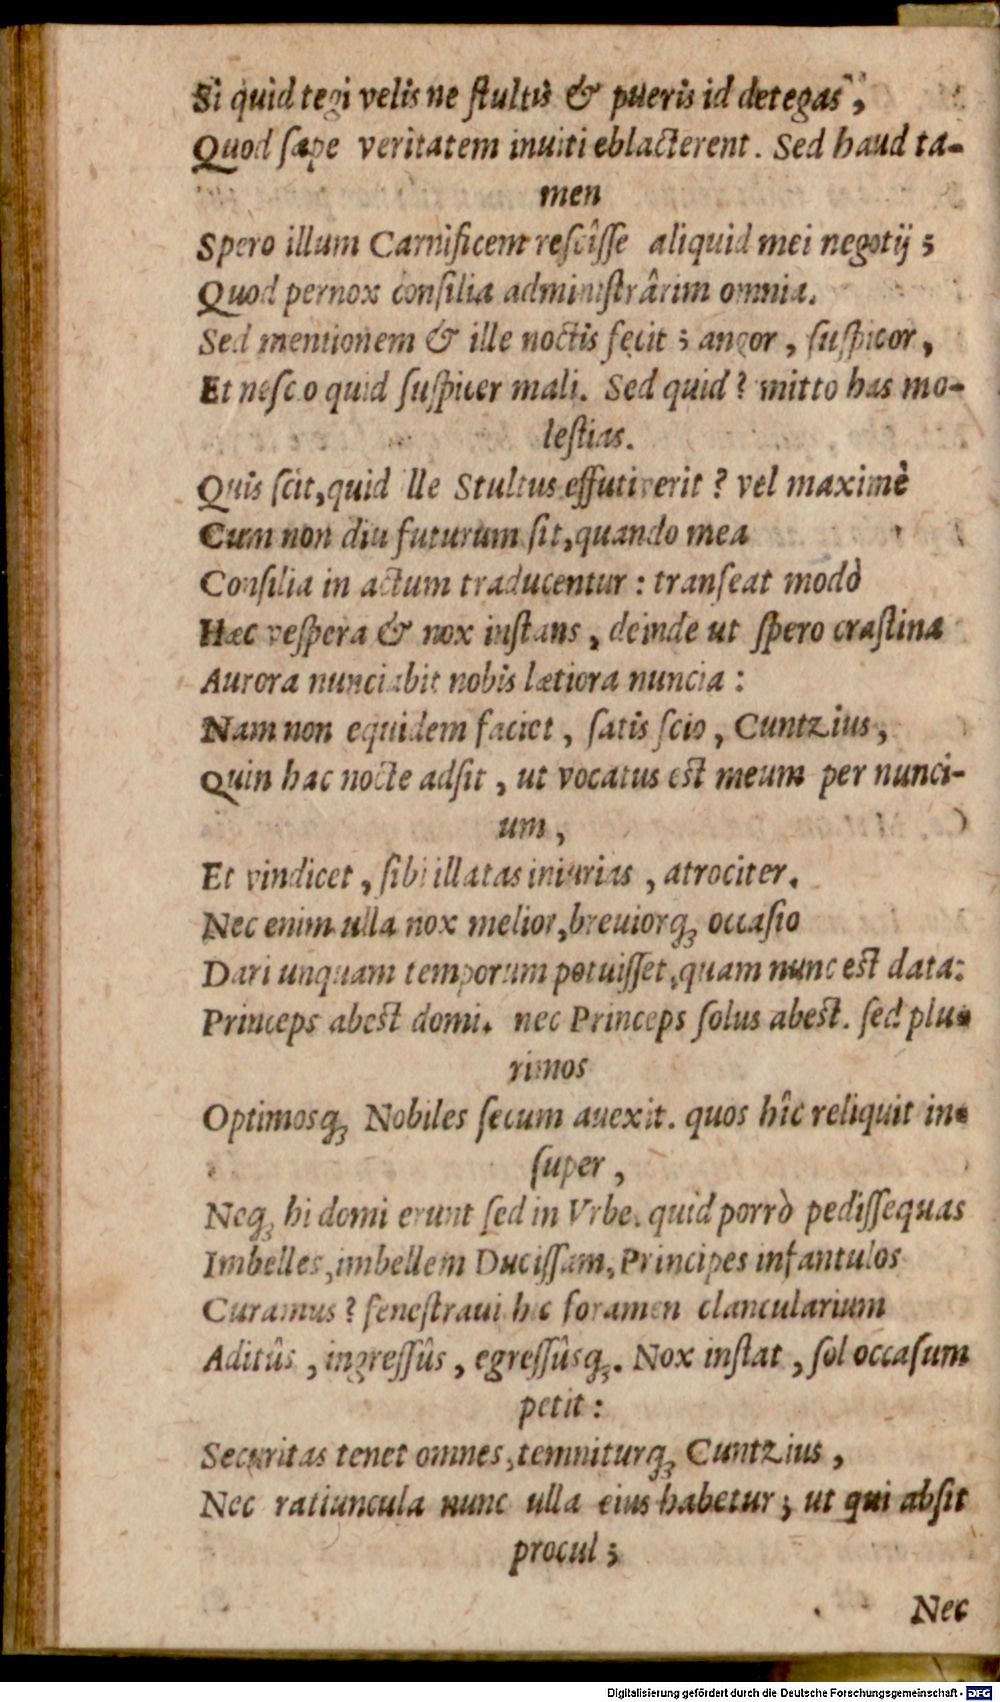 Si quid tegi velis ne ſtultis & pueris id detegas,
Quod ſæpe veritatem inuiti eblacterent. Sed haud ta-
men
Spero illum Carnificem reſcîſſe aliquid mei negotij;
Quod pernox conſilia adminiſtrârim omnia.
Sed mentionem & ille noctis fecit; angor, ſuſpicor,
Et neſcio quid ſuſpicer mali. Sed quid? mitto has mo-
leſtias.
Quis ſcit, quid lle Stultus effutiverit? vel maximè
Cum non diu futurum ſit, quando mea
Conſilia in actum traducentur: tranſeat modò
Hæc veſpera & nox inſtans, deinde ut ſpero craſtina
Aurora nunciabit nobis lætiora nuncia:
Nam non equidem faciet, ſatis ſcio, Cuntzius,
Quin hac nocte adſit, ut vocatus est meum per nunci-
um,
Et vindicet, ſibi illatas iniurias, atrociter.
Nec enim ulla nox melior, breuiorq́; occaſio
Dari unquam temporum potuiſſet, quam nunc est data:
Princeps abest domi. nec Princeps ſolus abest. ſed plu-
rimos
Optimosq́; Nobiles ſecum auexit. quos hîc reliquit in-
ſuper,
Neq́; hi domi erunt ſed in Vrbe. quid porrò pediſſequas
Imbelles, imbellem Duciſſam, Principes infantulos
Curamus? feneſtraui hic foramen clancularium
Aditûs, ingreſſûs, egreſſûsq́;. Nox inſtat, ſol occaſum
petit:
Securitas tenet omnes, temniturq́; Cuntzius,
Nec ratiuncula nunc ulla eius habetur; ut qui abſit
procul;
Nec
Digitalisierung gefördert durch die Deutsche Forschungsgemeinschaft - DFG